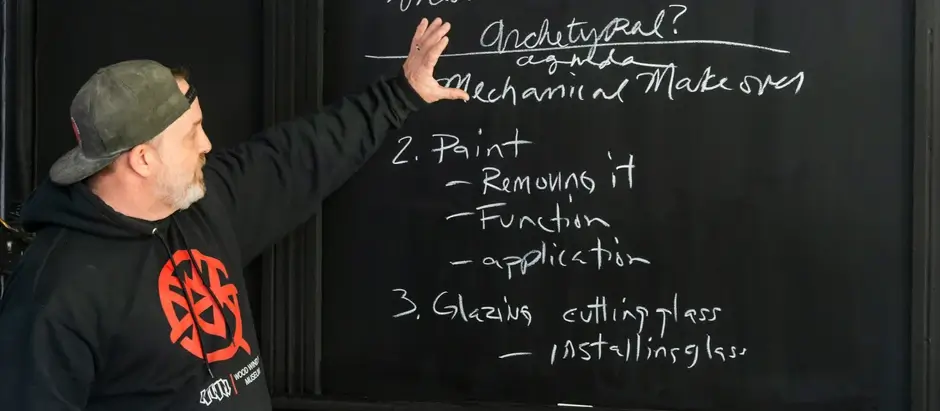 Archetypeal?
agenda
Mechanical Makeovers
2. Paint
– Removing it
– Function
– application
3. Glazing cutting glass
– installing glass
WOOD WINDOW
MUSEUM